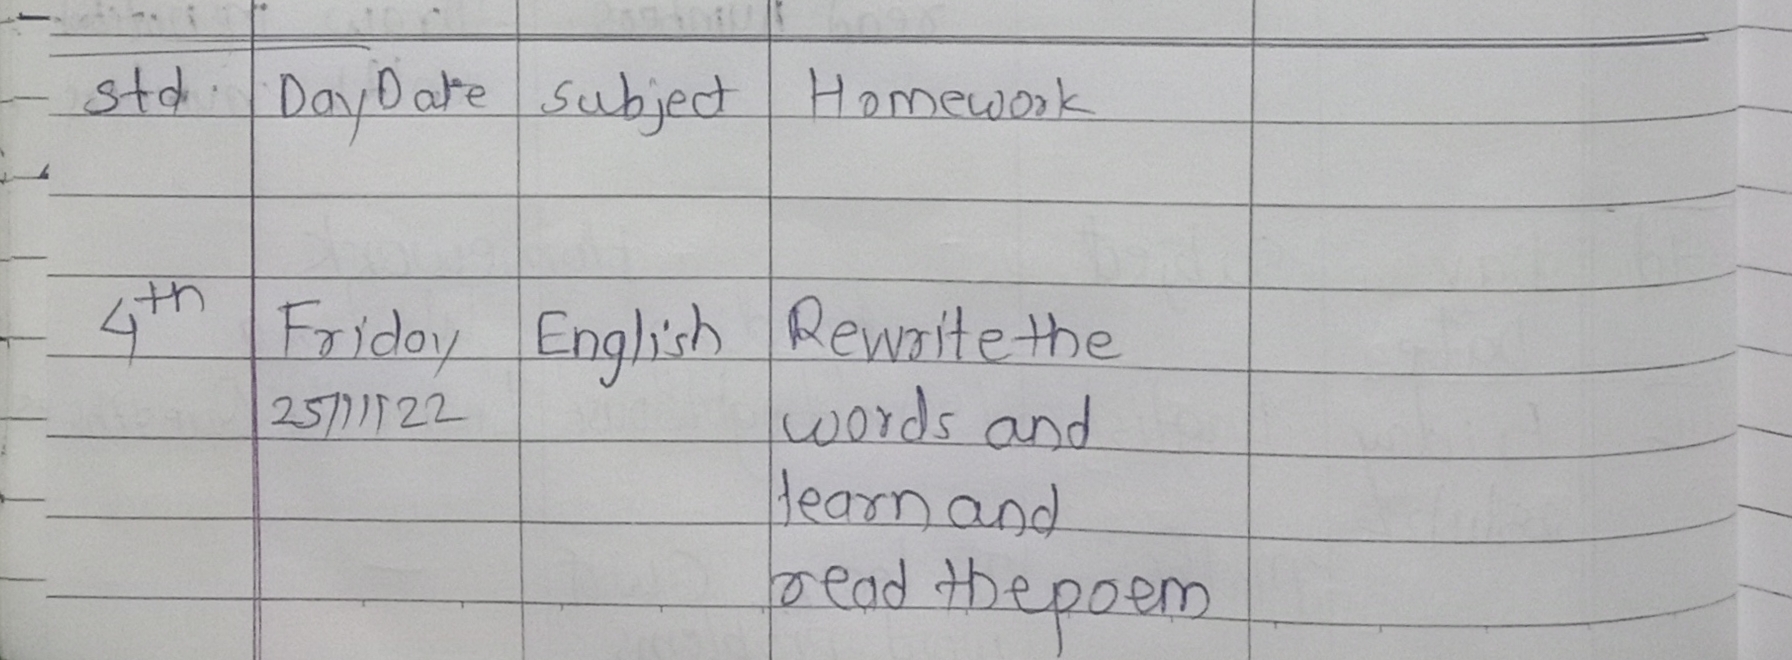 std. Day Date subject Homework
4th Friday English Rewrite the
25/11/22 words and
learn and
read the poem